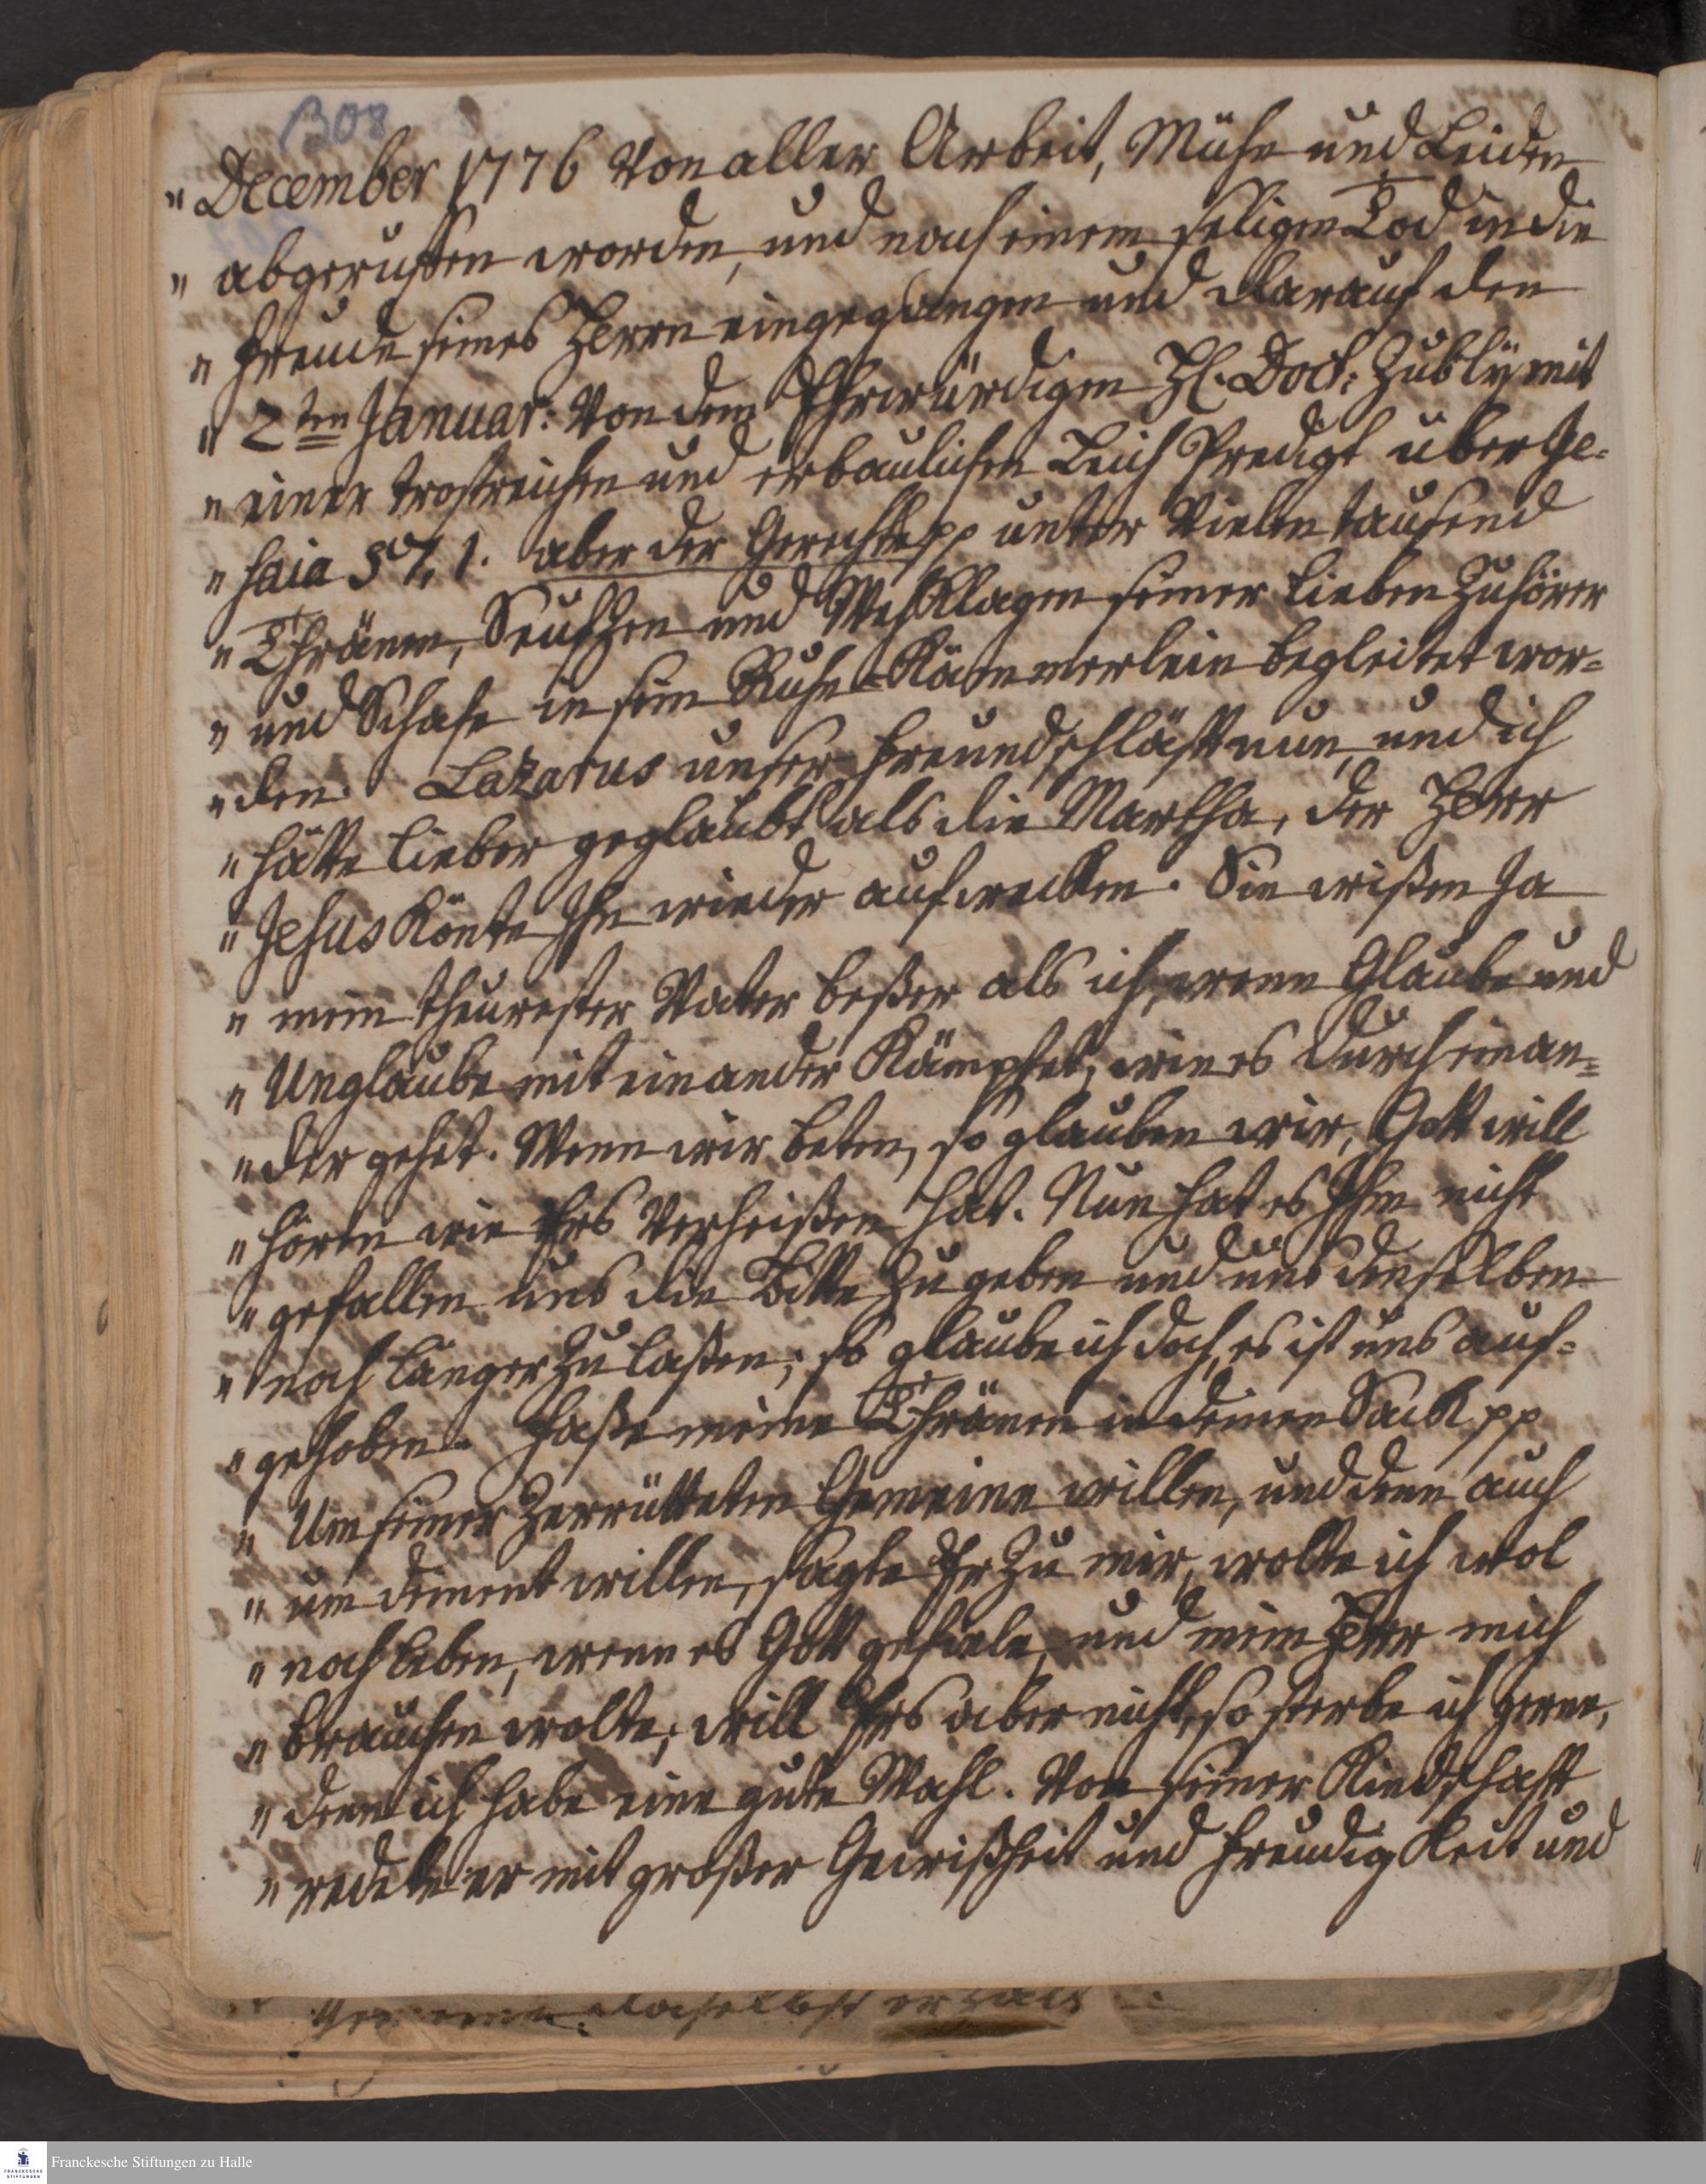 1308
" December 1776 von aller Arbeit, Mühe und Leiden
" abgeruffen worden, und nach einem seligen Tod in die
" Freude seines Herrn eingegangen und darauf den
" 2ten Januar: von dem Ehrwürdigen H. Doct: Zubly mit
" einer trostreichen und erbaulichen Leich Predigt über Je-
" saia 57, 1. aber der Gerechte pp unter vielen tausend
" Thränen, Seufzen und Wehklagen seiner lieben Zuhörer
" und Schafe in sein Ruhe-Kämmerlein begleitet wor-
" den. Lazarus unser Freund schläfft nun, und ich
" hätte lieber geglaubt als die Martha, der Herr
" Jesus könte Ihn wieder aufwecken. Sie wißen Ja
" mein theurester Vater beßer als ich, wenn Glaube und
" Unglaube mit einander Kämpfet, wie es durch einan-
" der gehet. Wenn wir beten, so glauben wir, Gott will
" hören wie Ers verheißen hat. Nun hat es Ihm nicht
" gefallen uns die Bitte zu geben und uns denselben
" noch länger zu laßen; so glaube ich doch, es ist uns auf-
" gehoben. Faße meine Thränen in deinen Sack pp
" Um seiner zerrütteten Gemeine willen, und denn auch
" um deinent willen, sagte Er zu mir, wolte ich wol
" noch leben, wenn es Gott gefiele, und mein Herr mich
" brauchen wolte; will Ers aber nicht, so sterbe ich gerne,
" denn ich habe eine gute Wahl. Von seiner Kindschafft
" redete er mit großer Gewißheit und Freudigkeit und
daselbst
Franckesche Stiftungen zu Halle
FRANCKESCHE STIFTUNGEN